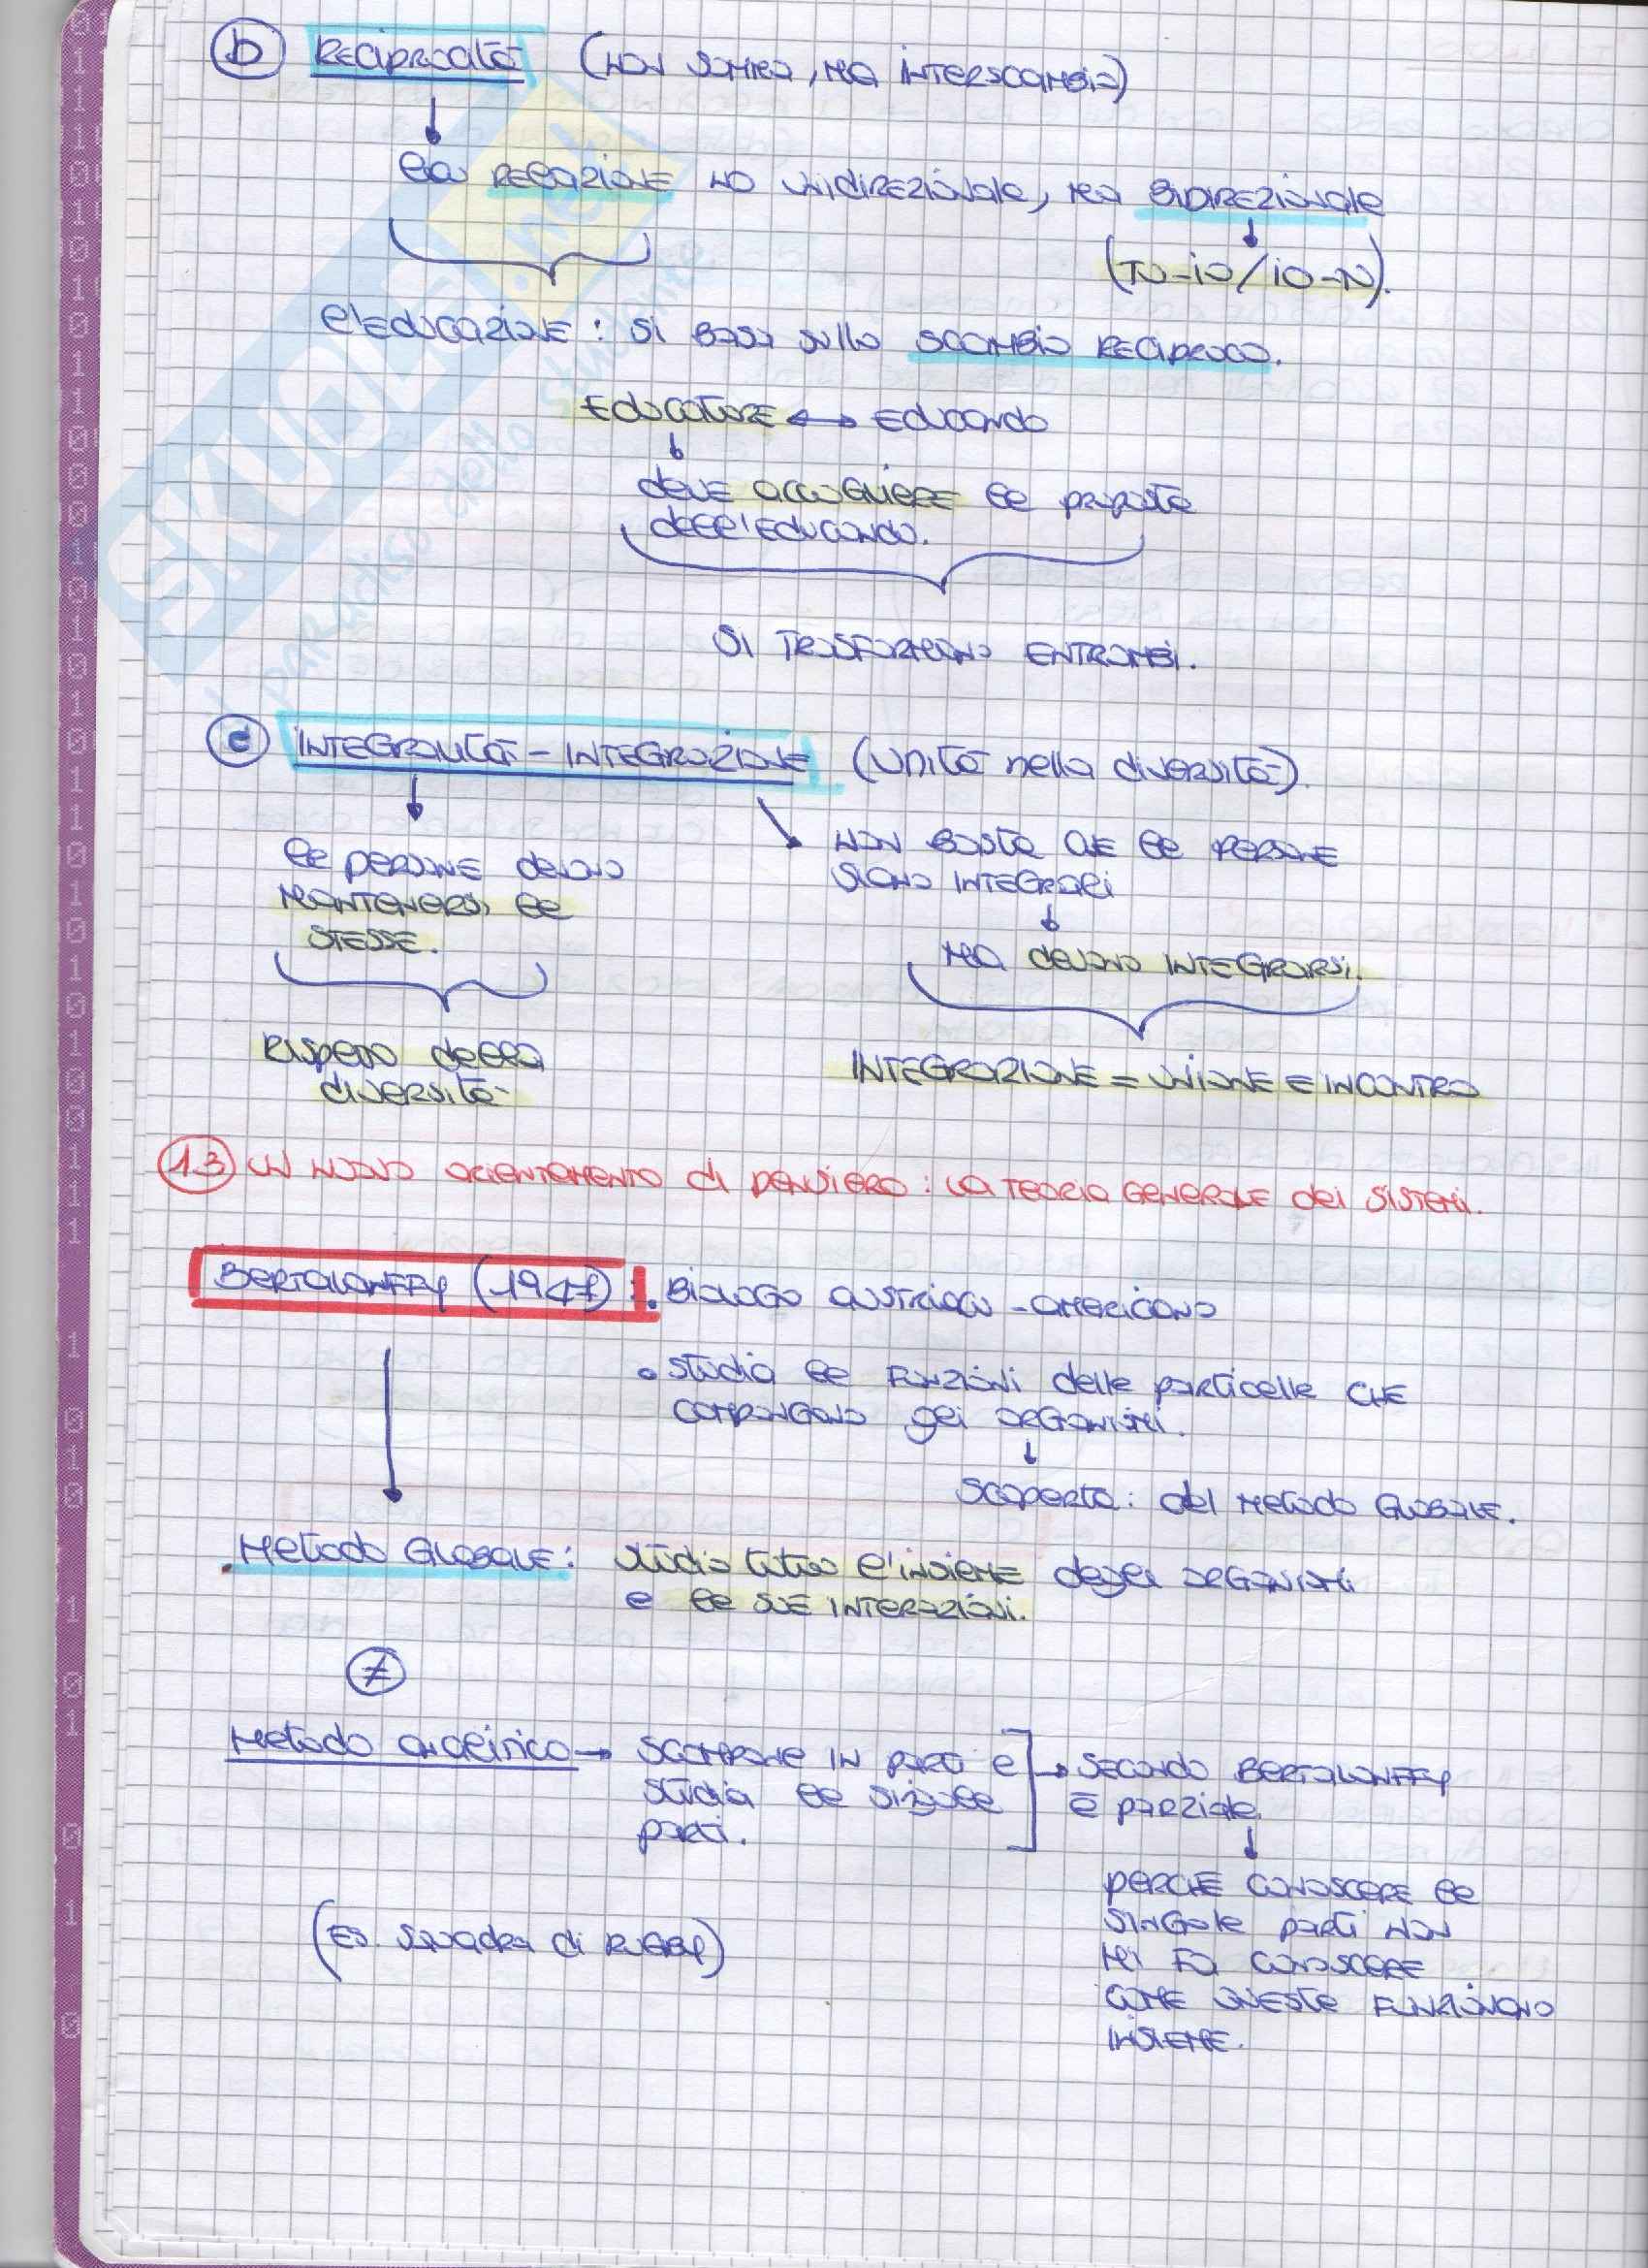 b RECIPROCITÀ (NON SOMMA, MA INTERSCAMBIO)
la RELAZIONE NO UNIDIREZIONALE, MA BIDIREZIONALE
(TU-IO/IO-TU).
l'EDUCAZIONE: SI BASA SULLO SCAMBIO RECIPROCO.
EDUCATORE ↔ EDUCANDO
DEVE ACCOGLIERE le PROPOSTE
dell'EDUCANDO.
SI TRASFORMANO ENTRAMBI.
c INTEGRALITÀ - INTEGRAZIONE (UNITÀ nella diversità).
le PERSONE devono
MANTENERSI le
STESSE.
NON BASTA CHE le PERSONE
SIANO INTEGRALI
MA devono INTEGRARSI.
RISPETTO della
diversità
INTEGRAZIONE = UNIONE E INCONTRO
1.3 UN NUOVO ORIENTAMENTO di PENSIERO: LA TEORIA GENERALE dei SISTEMI.
BERTALANFFY (1947): • BIOLOGO AUSTRIACO-AMERICANO
• STUDIA le FUNZIONI delle particelle CHE
COMPONGONO gli ORGANISMI.
SCOPERTA: del METODO GLOBALE.
METODO GLOBALE: STUDIO tutto l'INSIEME degli ORGANISMI
e le SUE INTERAZIONI.
≠
METODO analitico → SCOMPONE IN PARTI E
STUDIA le singole
parti.
→ SECONDO BERTALANFFY
È parziale.
PERCHÉ CONOSCERE le
SINGOLE parti NON
MI FA CONOSCERE
COME QUESTE FUNZIONANO
INSIEME.
(ES. SQUADRA di RUGBY)
SKUOLA.net
il paradiso dello studente